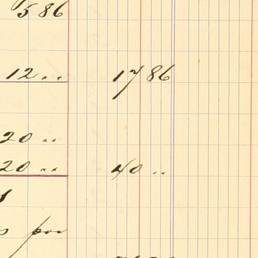 5 86
12 .. 17 86
20 ..
20 .. 40 ..